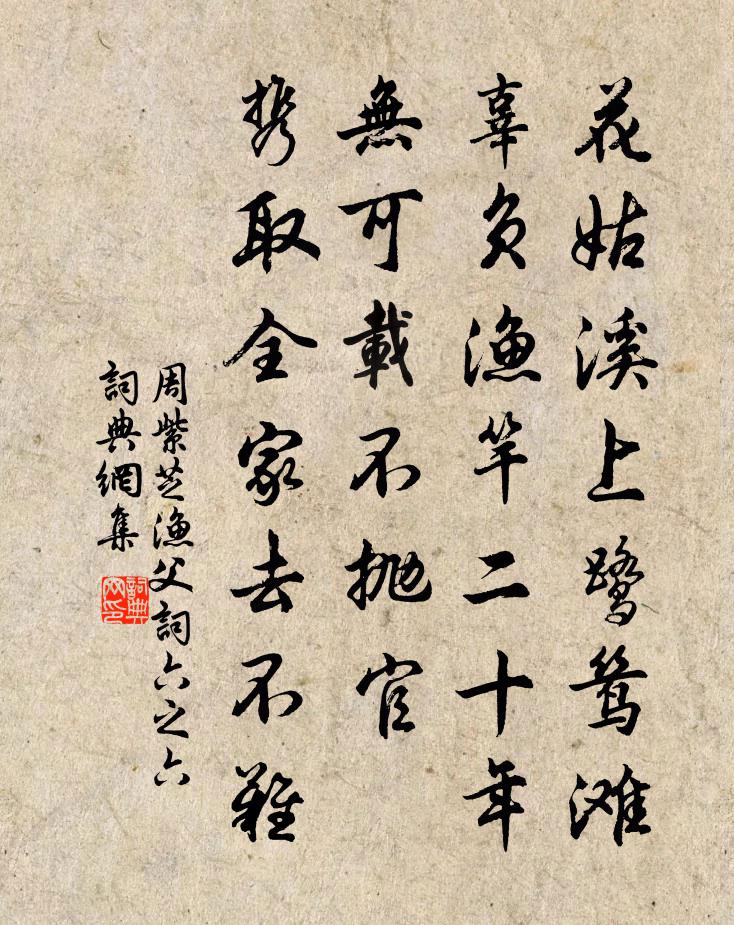 花姑溪上鷺鸶滩
辜負漁竿二十年
無可載不拋官
携取全家去不難
周紫芝漁父詞六之六
詞典網集
詞典
网印